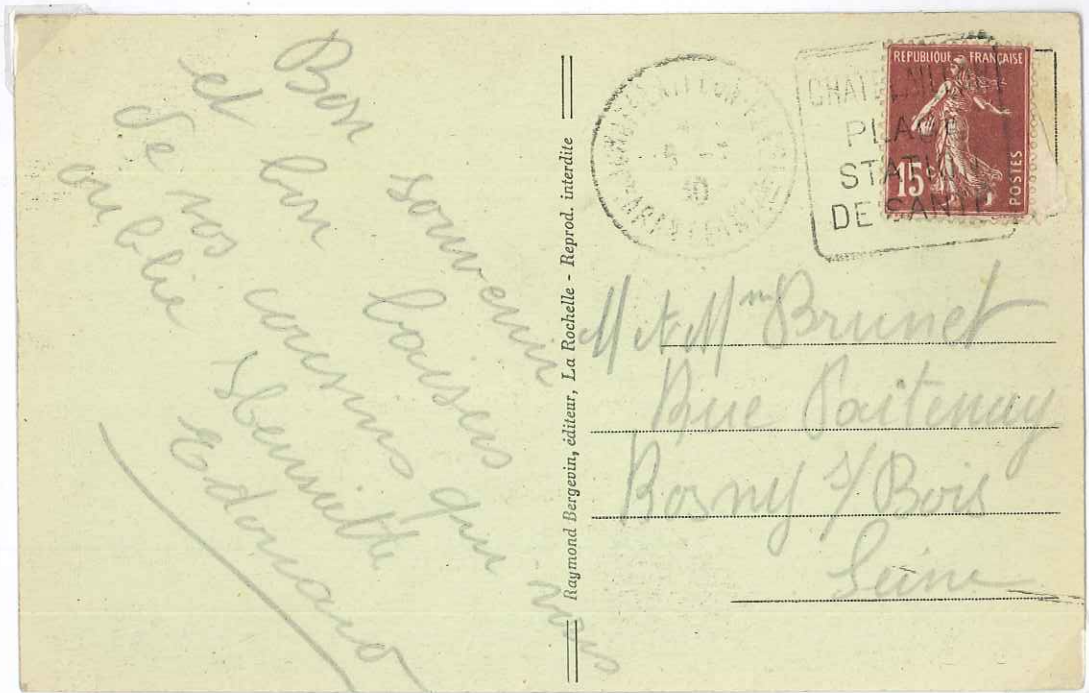 Bon souvenir
et bon baisers
de nos cousins qui nous
oublie
Henriette
Edouard
Raymond Bergevin, éditeur, La Rochelle - Reprod. interdite
CHATELAILLON
PLAGE
STATION
DE SANTE
REPUBLIQUE FRANÇAISE
15
POSTES
M et Mme Brunet
Rue
Rosny s/Bois
Seine